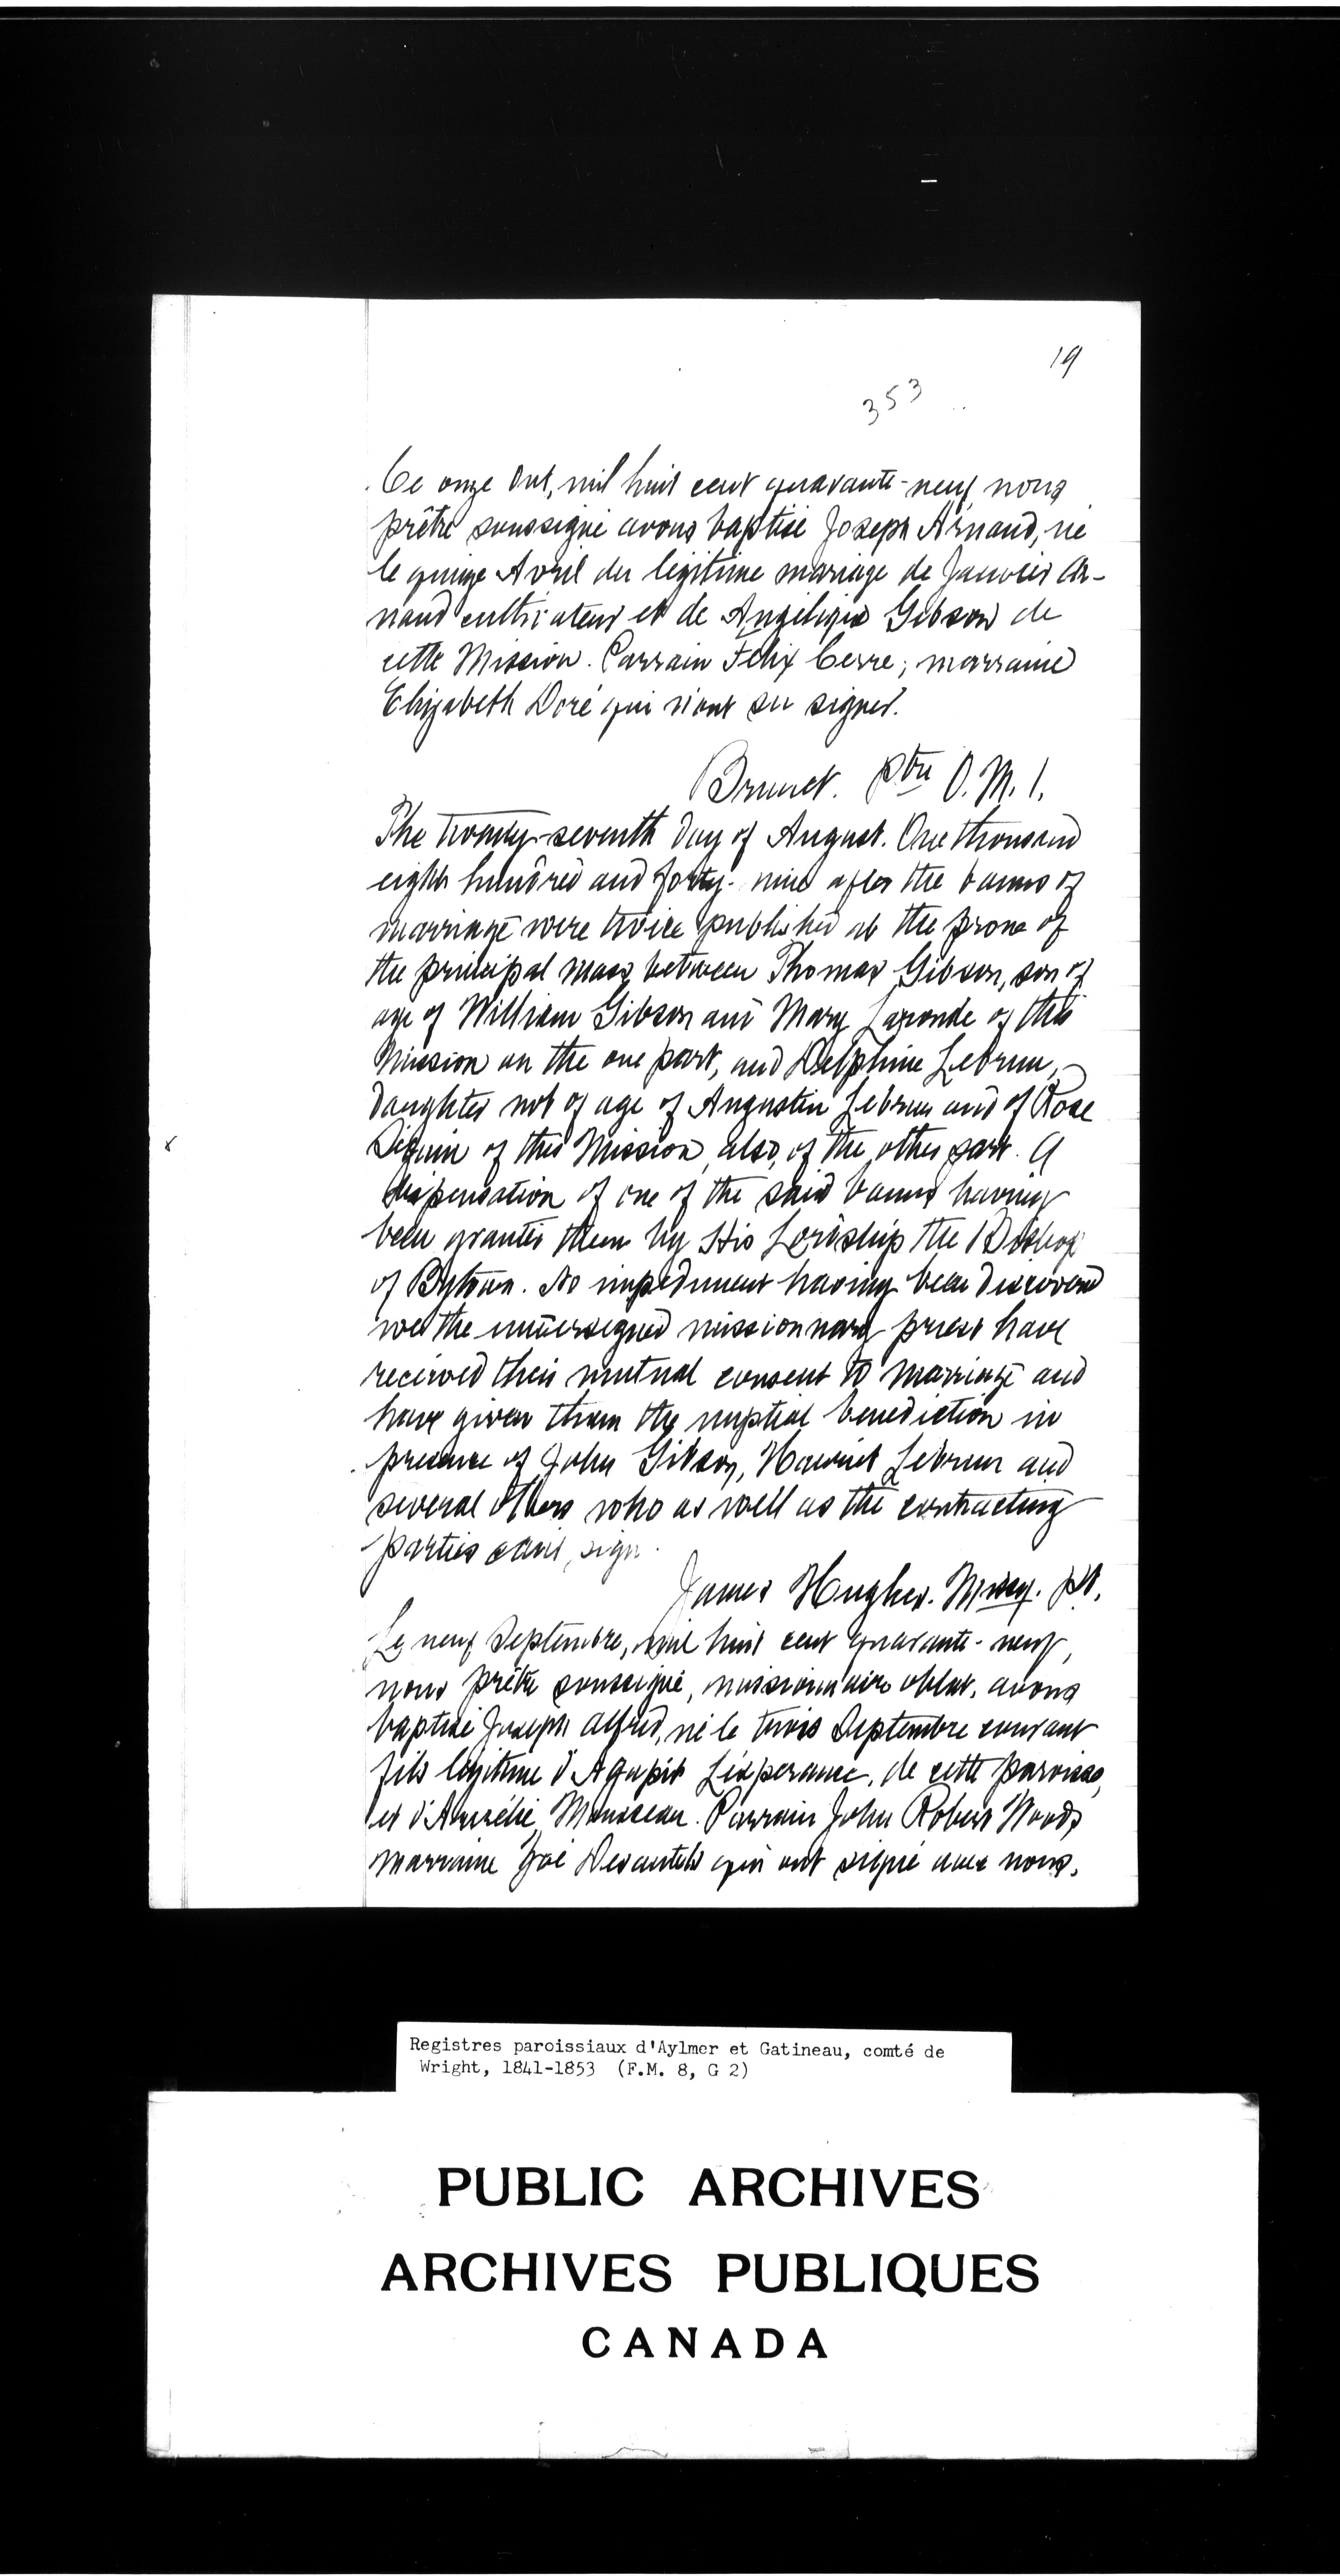 19
353
Ce onze Out, mil huit cent quarante-neuf, nous
prêtre soussigné avons baptisé Joseph Arnaud, né
le quinze Avril du légitime mariage de Janvier Ar-
naud cultivateur et de Angélique Gibson de
cette Mission. Parrain Félix Cerre; marraine
Elizabeth Doré qui n'ont su signer.
Brunet. ptre O.M.I.
The twenty-seventh day of August. One thousand
eight hundred and forty-nine after the banns of
marriage were twice published at the prone of
the principal mass between Thomas Gibson, son of
age of William Gibson and Mary Laronde of this
Mission on the one part, and Delphine Lebrun,
daughter not of age of Augustin Lebrun and of Rose
Séguin of this Mission also, of the other part. A
dispensation of one of the said banns having
been granted them by His Lordship the Bishop
of Bytown. No impediment having been discovered
we the undersigned missionnary priest have
received their mutual consent to marriage and
have given them the nuptial benediction in
presence of John Gibson, Harriet Lebrun and
several others who as well as the contracting
parties sign.
James Hughes. Missy. pt.
Le neuf Septembre, mil huit cent quarante-neuf,
nous prêtre soussigné, missionnaire oblat, avons
baptisé Joseph Alfred, né le trois Septembre courant
fils légitime d'Agapit Léxperance, de cette paroisse,
et d'Aurélie Mousseau. Parrain John Robert Woods,
marraine Zoé Desautels qui ont signé avec nous.
Registres paroissiaux d'Aylmer et Gatineau, comté de
Wright, 1841-1853 (F.M. 8, G 2)
PUBLIC ARCHIVES
ARCHIVES PUBLIQUES
CANADA